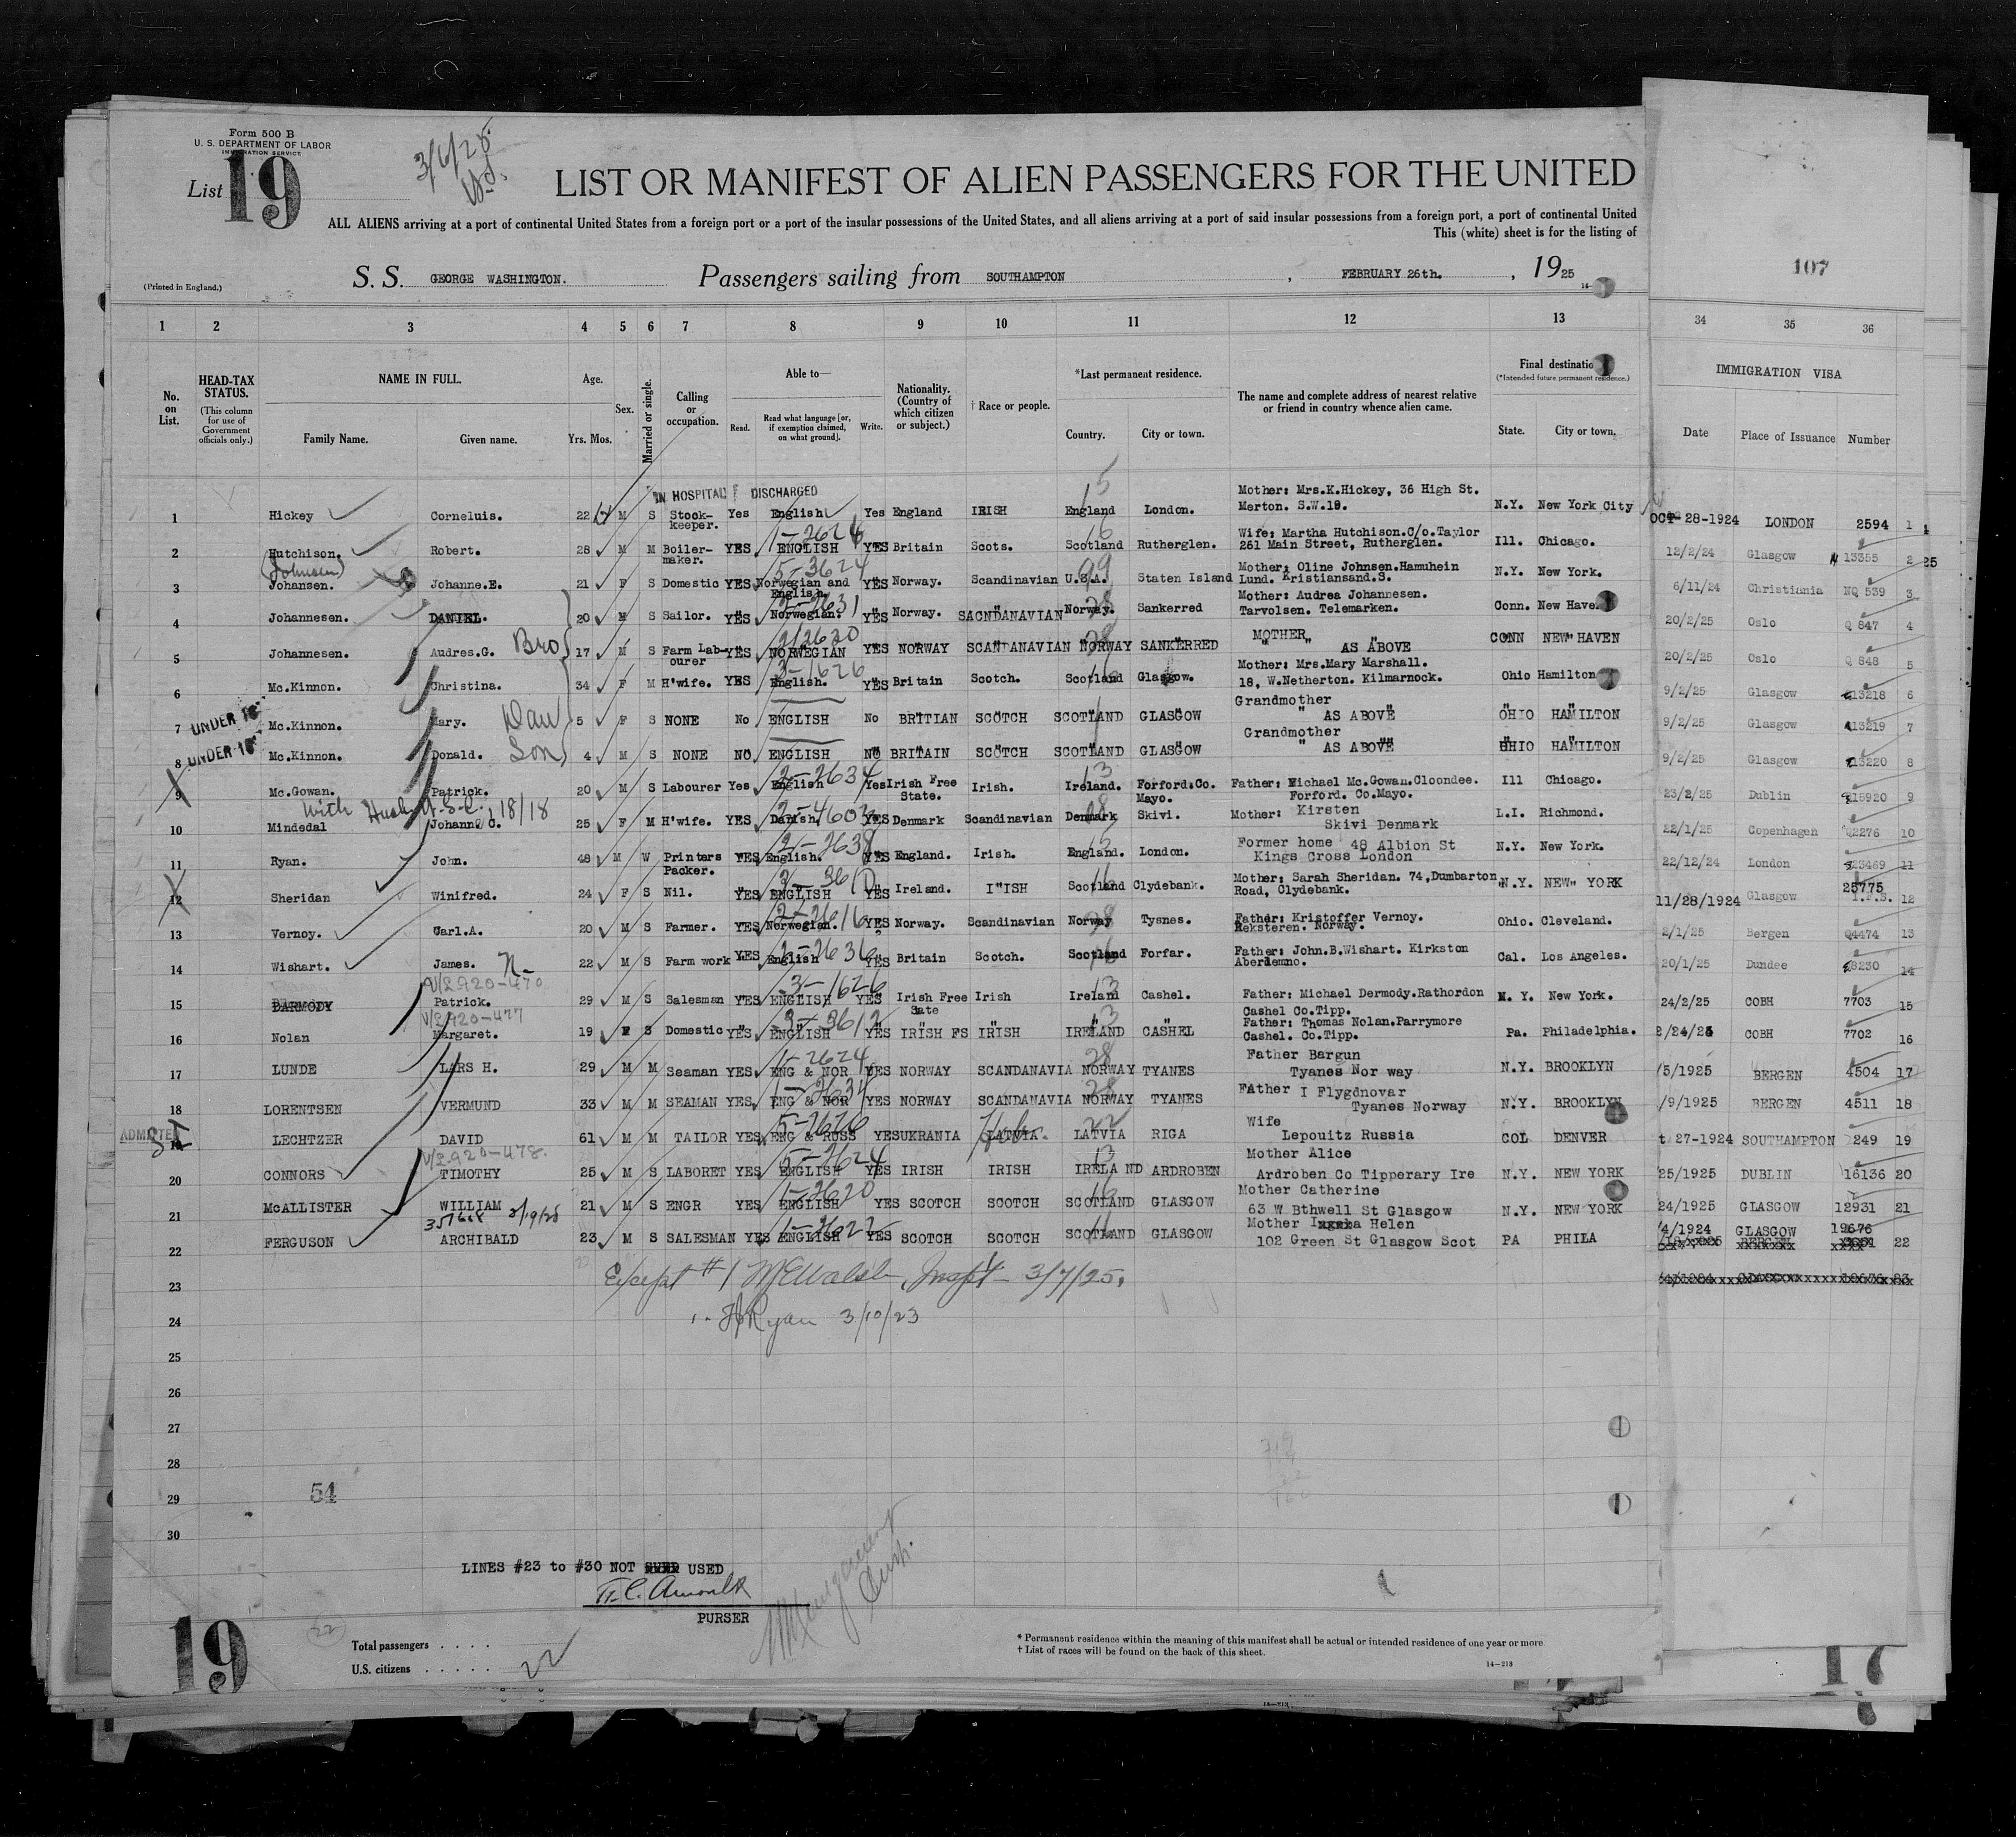 Form 500 B
U. S. DEPARTMENT OF LABOR
IMMIGRATION SERVICE
List 19
3/6/25
LIST OR MANIFEST OF ALIEN PASSENGERS FOR THE UNITED
ALL ALIENS arriving at a port of continental United States from a foreign port or a port of the insular possessions of the United States, and all aliens arriving at a port of said insular possessions from a foreign port, a port of continental United
This (white) sheet is for the listing of
107
(Printed in England.)
S. S. GEORGE WASHINGTON. Passengers sailing from SOUTHAMPTON , FEBRUARY 26th. , 1925
1 2 3 4 5 6 7 8 9 10 11 12 13 34 35 36
No. on List. HEAD-TAX STATUS. (This column for use of Government officials only.) NAME IN FULL. Family Name. Given name. Age. Yrs. Mos. Sex. Married or single. Calling or occupation. Able to— Read. Read what language [or, if exemption claimed, on what ground]. Write. Nationality. (Country of which citizen or subject.) † Race or people. *Last permanent residence. Country. City or town. The name and complete address of nearest relative or friend in country whence alien came. Final destination (*Intended future permanent residence.) State. City or town. IMMIGRATION VISA Date Place of Issuance Number
IN HOSPITAL DISCHARGED
1 Hickey Corneluis. 22 M S Stock-keeper. Yes English Yes England IRISH England London. Mother: Mrs.K.Hickey, 36 High St. Merton. S.W.19. N.Y. New York City OCT 28-1924 LONDON 2594 1
2 Hutchison. Robert. 28 M M Boiler-maker. YES ENGLISH YES Britain Scots. Scotland Rutherglen. Wife: Martha Hutchison.C/o.Taylor 261 Main Street, Rutherglen. Ill. Chicago. 12/2/24 Glasgow 13355 2
1-2624 16
(Johnsen)
3 Johansen. Johanne.E. 21 F S Domestic YES Norwegian and English. YES Norway. Scandinavian U.S.A. Staten Island Mother: Oline Johnsen.Hamuhein Lund. Kristiansand.S. N.Y. New York. 6/11/24 Christiania NQ 539 3
5-3624 99
4 Johannesen. DANIEL. 20 M S Sailor. YES Norwegian. YES Norway. SACNDANAVIAN Norway. Sankerred Mother: Audrea Johannesen. Tarvolsen. Telemarken. Conn. New Haven 20/2/25 Oslo Q 847 4
2-2631 28
5 Johannesen. Audres.G. Bro 17 M S Farm Lab-ourer YES NORWEGIAN YES NORWAY SCANDANAVIAN NORWAY SANKERRED MOTHER " AS ABOVE CONN NEW HAVEN 20/2/25 Oslo Q 848 5
6 Mc.Kinnon. Christina. 34 F M H'wife. YES English. YES Britain Scotch. Scotland Glasgow. Mother: Mrs.Mary Marshall. 18, W.Netherton. Kilmarnock. Ohio Hamilton 9/2/25 Glasgow 13218 6
3-1626
UNDER 16
7 Mc.Kinnon. Mary. Dau 5 F S NONE No ENGLISH No BRITIAN SCOTCH SCOTLAND GLASGOW Grandmother " AS ABOVE OHIO HAMILTON 9/2/25 Glasgow 13219 7
UNDER 16
8 Mc.Kinnon. Donald. Son 4 M S NONE NO ENGLISH NO BRITAIN SCOTCH SCOTLAND GLASGOW Grandmother " AS ABOVE OHIO HAMILTON 9/2/25 Glasgow 13220 8
9 Mc.Gowan. Patrick. 20 M S Labourer Yes English Yes Irish Free State. Irish. Ireland. Forford.Co. Mayo. Father: Michael Mc.Gowan.Cloondee. Forford. Co.Mayo. Ill Chicago. 23/2/25 Dublin 15920 9
2-2634 13
with Husb U.S.C. 18/18
10 Mindedal Johanne C. 25 F M H'wife. YES Danish. YES Denmark Scandinavian Denmark Skivi. Mother: Kirsten Skivi Denmark L.I. Richmond. 22/1/25 Copenhagen Q2276 10
2-4603
11 Ryan. John. 48 M W Printers Packer. YES English. YES England. Irish. England. London. Former home 48 Albion St Kings Cross London N.Y. New York. 22/12/24 London 23469 11
2-2638 15
12 Sheridan Winifred. 24 F S Nil. YES ENGLISH YES Ireland. I"ISH Scotland Clydebank. Mother: Sarah Sheridan. 74,Dumbarton Road, Clydebank. N.Y. NEW YORK 11/28/1924 Glasgow 25775 I.F.S. 12
13 Vernoy. Carl.A. 20 M S Farmer. YES Norwegian. YES Norway. Scandinavian Norway Tysnes. Father: Kristoffer Vernoy. Reksteren. Norway. Ohio. Cleveland. 2/1/25 Bergen Q4474 13
2-2616 28
14 Wishart. James. 22 M S Farm work YES English YES Britain Scotch. Scotland Forfar. Father: John.B.Wishart. Kirkston Aberlemno. Cal. Los Angeles. 20/1/25 Dundee 8230 14
2-2636
V/2920-470
15 DARMODY Patrick. 29 M S Salesman YES ENGLISH YES Irish Free Sate Irish Ireland Cashel. Father: Michael Dermody.Rathordon Cashel Co.Tipp. N. Y. New York. 24/2/25 COBH 7703 15
3-1626 13
V/2920-477
16 Nolan Margaret. 19 F S Domestic YES ENGLISH YES IRISH FS IRISH IRELAND CASHEL Father: Thomas Nolan.Parrymore Cashel. Co.Tipp. Pa. Philadelphia. 2/24/25 COBH 7702 16
3-3612 13
17 LUNDE LARS H. 29 M M Seaman YES ENG & NOR YES NORWAY SCANDANAVIA NORWAY TYANES Father Bargun Tyanes Nor way N.Y. BROOKLYN /5/1925 BERGEN 4504 17
1-2624 28
18 LORENTSEN VERMUND 33 M M SEAMAN YES ENG & NOR YES NORWAY SCANDANAVIA NORWAY TYANES Father I Flygdnovar Tyanes Norway N.Y. BROOKLYN /9/1925 BERGEN 4511 18
1-2634 28
ADMITTED
LECHTZER DAVID 61 M M TAILOR YES ENG & RUSS YES UKRANIA LATVIA Heb. LATVIA RIGA Wife Lepouitz Russia COL DENVER t 27-1924 SOUTHAMPTON 249 19
5-2626 22
V/2920-478.
20 CONNORS TIMOTHY 25 M S LABORET YES ENGLISH YES IRISH IRISH IRELA ND ARDROBEN Mother Alice Ardroben Co Tipperary Ire N.Y. NEW YORK 25/1925 DUBLIN 16136 20
5-2624 13
21 McALLISTER WILLIAM 21 M S ENGR YES ENGLISH YES SCOTCH SCOTCH SCOTLAND GLASGOW Mother Catherine 63 W Bthwell St Glasgow N.Y. NEW YORK 24/1925 GLASGOW 12931 21
1-2620 16
22 FERGUSON ARCHIBALD 23 M S SALESMAN YES ENGLISH YES SCOTCH SCOTCH SCOTLAND GLASGOW Mother Helen 102 Green St Glasgow Scot PA PHILA /4/1924 GLASGOW 19676 22
1-2627
23 Except #1 Inspt - 3/7/25.
24 Ryan 3/10/23
25
26
27
28
29 54
30
LINES #23 to #30 NOT USED
PURSER
19
Total passengers . . . .
U.S. citizens . . . . . 22
* Permanent residence within the meaning of this manifest shall be actual or intended residence of one year or more
† List of races will be found on the back of this sheet.
14—213
17